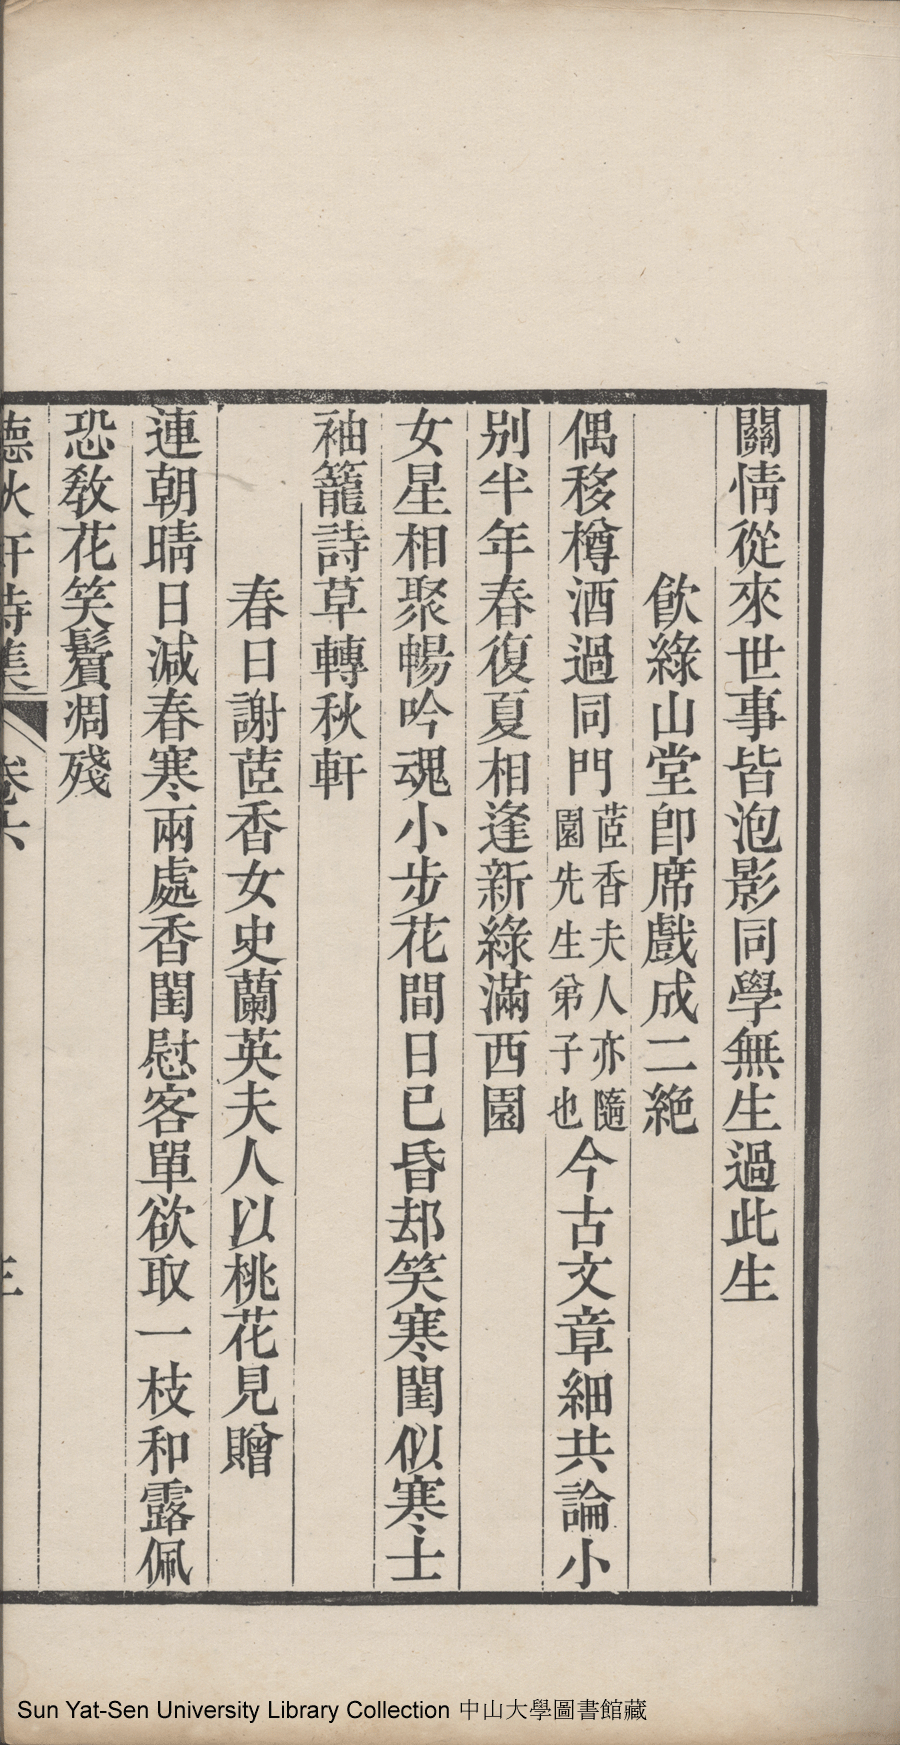 關情從來世事皆泡影同學無生過此生
飲綠山堂即席戲成二絕
偶移樽酒過同門茝香夫人亦隨園先生弟子也今古文章細共論小
別半年春復夏相逢新綠滿西園
女星相聚暢吟魂小步花間日已昏却笑寒閨似寒士
袖籠詩草轉秋軒
春日謝茝香女史蘭英夫人以桃花見贈
連朝晴日減春寒兩處香閨慰客單欲取一枝和露佩
恐敎花笑鬢凋殘
德秋軒詩集 卷六 三
Sun Yat-Sen University Library Collection 中山大學圖書館藏